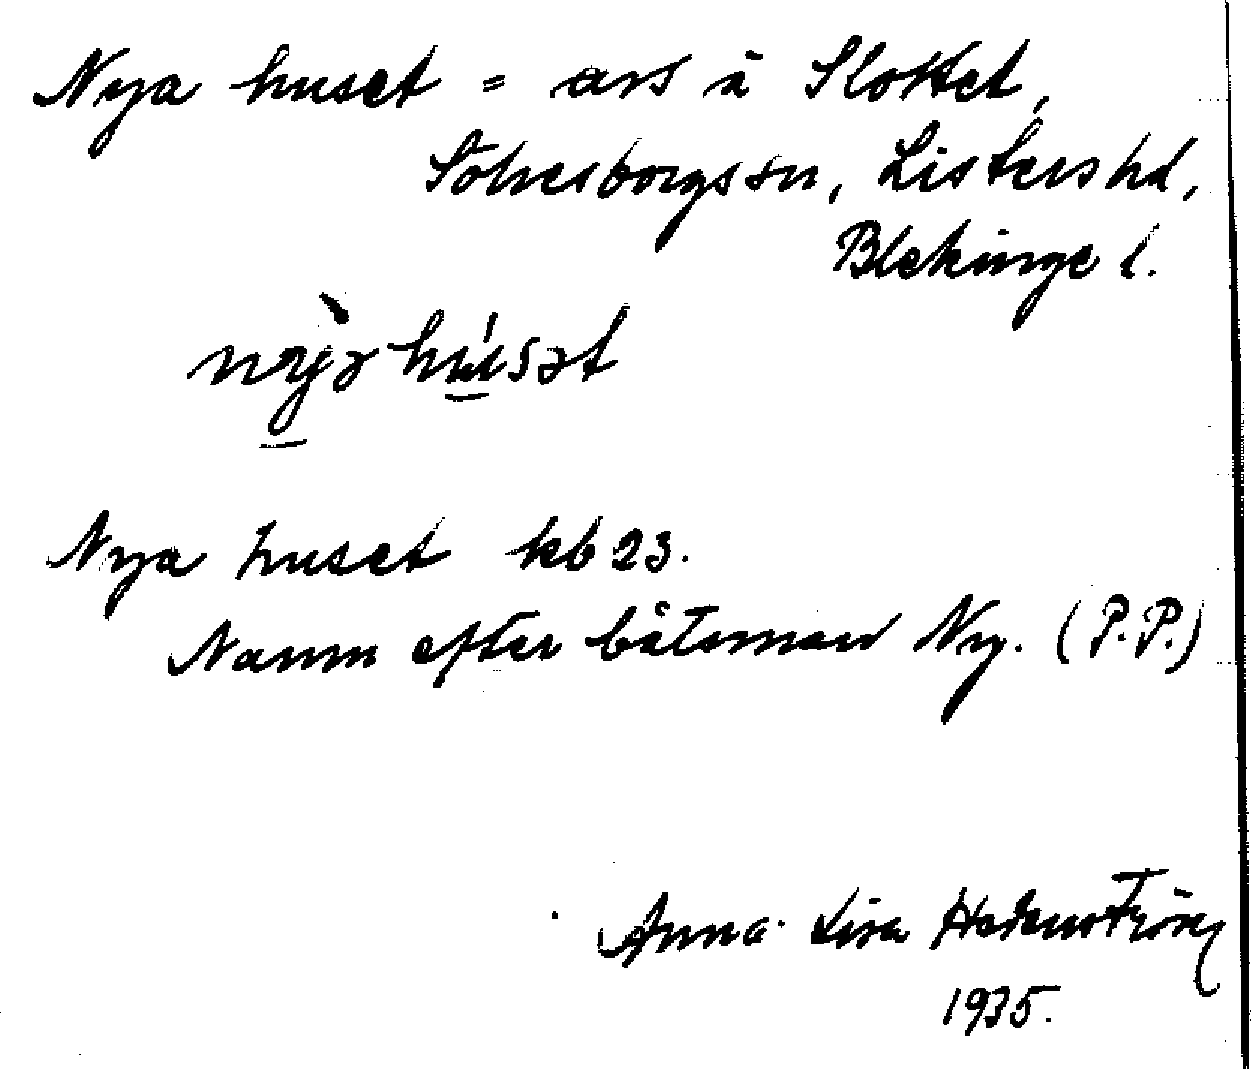 Nya huset = avs å Slottet,
Sölvesborgs sn, Listers hd,
Blekinge l.
Nya huset kb 23.
Namn efter båtsman Ny. (P.P.)
Anna-Lisa Hedenström
1935.